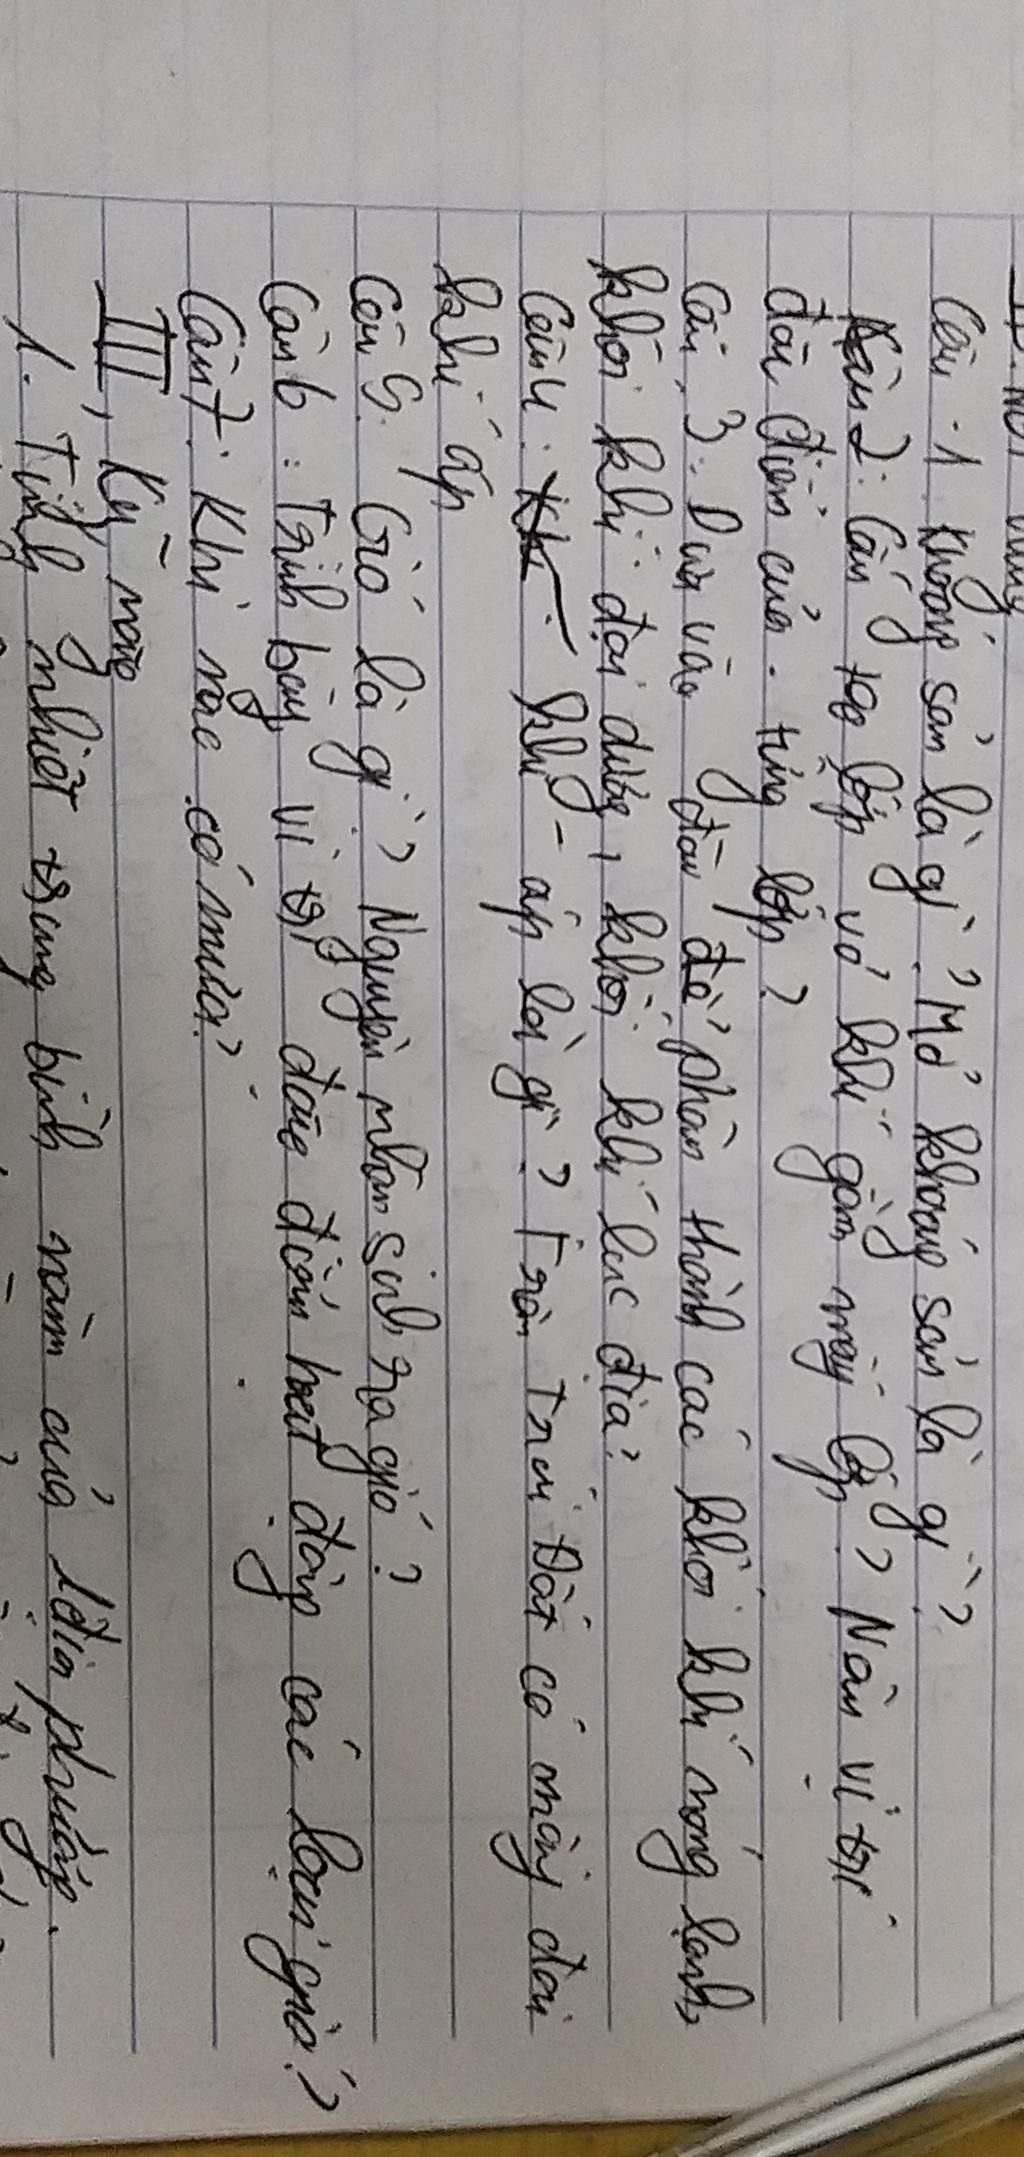 II. Nội dung
Câu 1. Khoáng sản là gì? Mỏ khoáng sản là gì?
Câu 2: Cấu tạo lớp vỏ khí gồm mấy lớp? Nêu vị trí
đặc điểm của từng lớp?
Câu 3: Dựa vào đâu để phân thành các khối khí nóng lạnh,
khối khí đại dương, khối khí lục địa?
Câu 4: khí áp là gì? Trên Trái Đất có mấy đai
khí áp
Câu 5. Gió là gì? Nguyên nhân sinh ra gió?
Câu 6: Trình bày vị trí đặc điểm hoạt động các loại gió?
Câu 7. Khi nào có mưa?
III, Kỹ năng
1. Tính nhiệt trung bình năm của 1 địa phương.